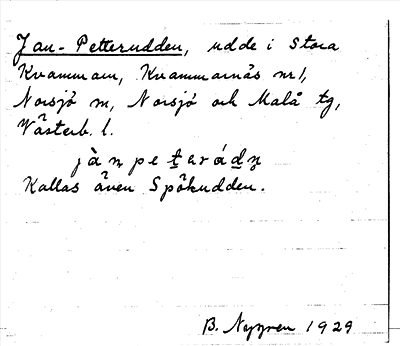 Jan-Petterudden, udde i Stora
Kvammarn, Kvammarnäs nr 1,
Norsjö sn, Norsjö och Malå tg,
Västerb. l.
Kallas även Spökudden.
B. Nygren 1929